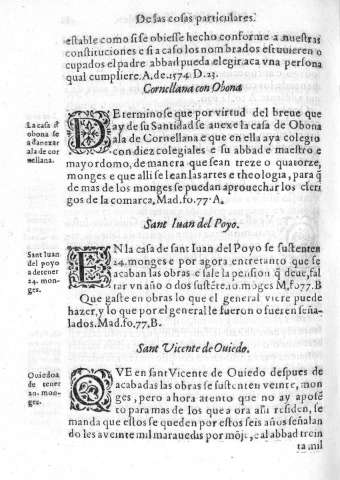 De las cosas particulares.
estable como si se obiesse hecho conforme a nuestras
constituciones e si a caso los nombrados estuuieren o
cupados el padre abbad pueda elegir aca vna persona
qual cumpliere. A. de. 1574. D. 23.
Cornellana con Obona
La casa d̄
obona se
a d̄ anexar
ala de cor
nellana.
DEterminose que por virtud del breue que
ay de su Santidad se anexe la casa de Obona
ala de Cornellana e que en ella aya colegio
con diez colegiales e su abbad e maestro e
mayordomo, de manera que sean treze o quatorze,
monges e que alli se lean las artes e theologia, para q̄
de mas de los monges se puedan aprouechar los cleri
gos de la comarca, Mad. fo. 77. A.
Sant Iuan del Poyo.
Sant Iuan
del poyo
a de tener
24. mon-
ges.
EN la casa de sant Iuan del Poyo se sustenten
24. monges e por agora entretanto que se
acaban las obras e sale la pension q̄ deue, fal
tar vn año o dos sustēte. 10. moges M, fo 77. B
Que gaste en obras lo que el general viere puede
hazer, y lo que por el general le fueron o fueren seña-
lados. Mad. fo. 77, B.
Sant Vicente de Ouiedo.
Ouiedo a
de tener
20. mon-
ges.
QVE en sant Vicente de Ouiedo despues de
acabadas las obras se sustenten veinte, mon
ges, pero ahora atento que no ay aposē
to para mas de los que a ora alli residen, se
manda que estos se queden por estos seis años señalan
do les a veinte mil marauedis por mōje, e al abbad trein
ta mil